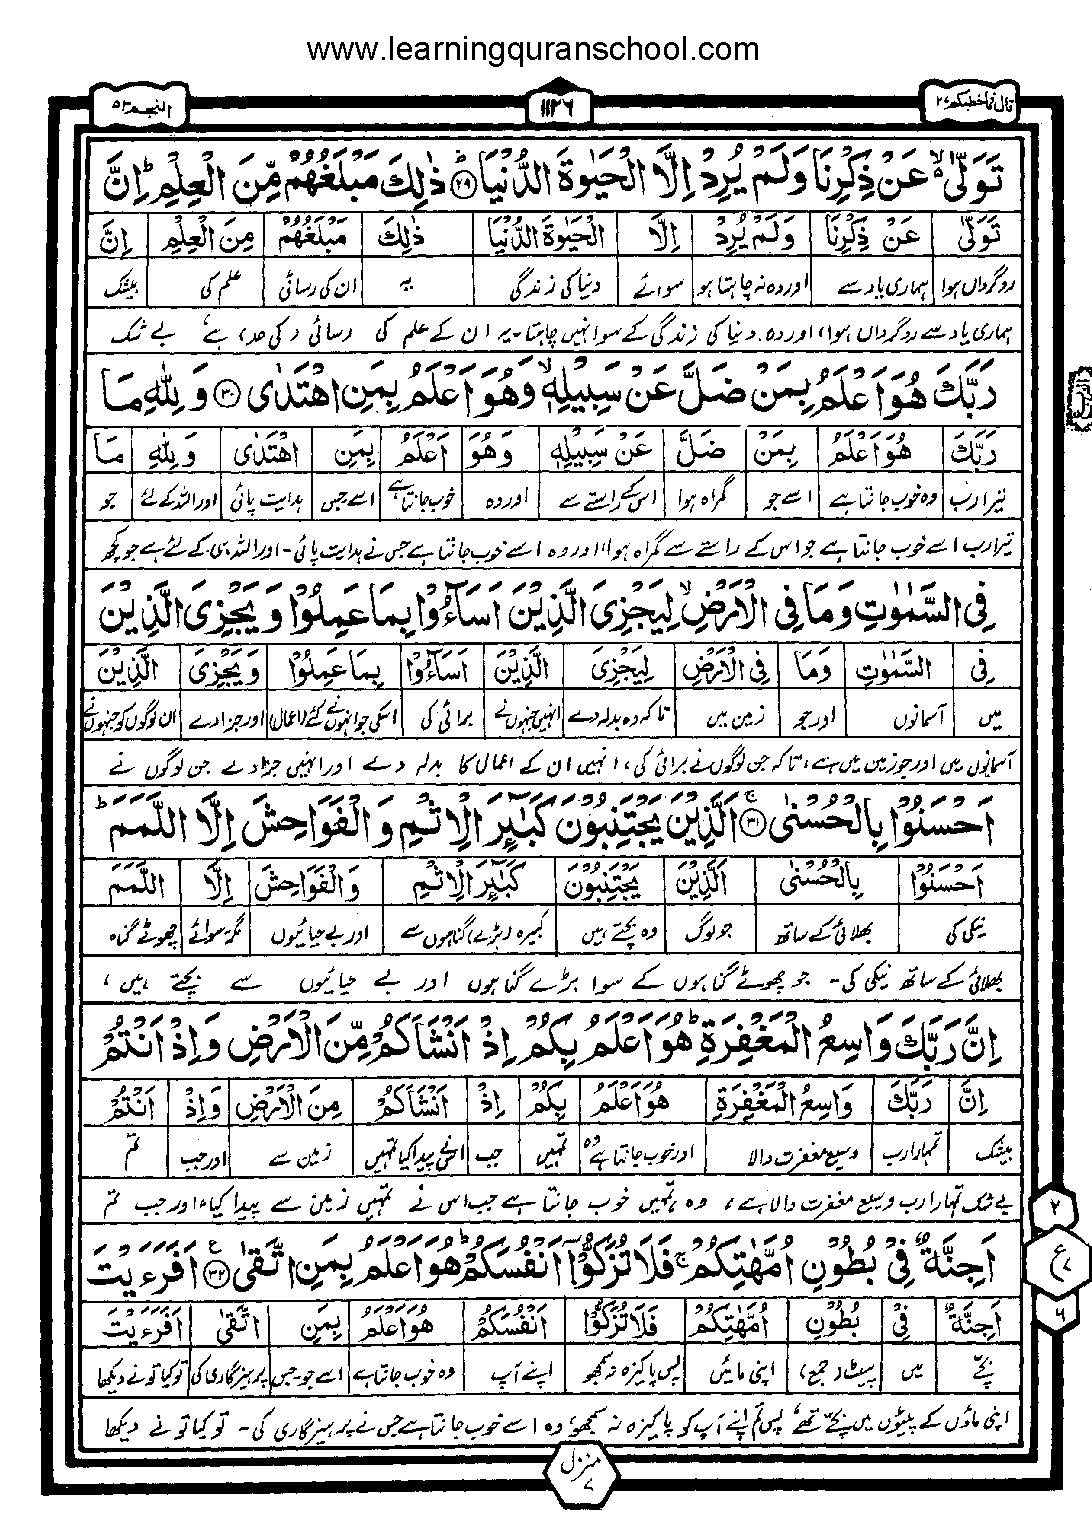 www.learningquranschool.com
قال فما خطبکم ۲۷
۱۱۲۶
النجم ۵۳
تَوَلّٰى ۙ۬ عَنْ ذِكْرِنَا وَلَمْ يُرِدْ اِلَّا الْحَيٰوةَ الدُّنْيَا ؕ ﴿۲۹﴾ ذٰلِكَ مَبْلَغُهُمْ مِّنَ الْعِلْمِ ؕ اِنَّ
تَوَلّٰى عَنْ ذِكْرِنَا وَلَمْ يُرِدْ اِلَّا الْحَيٰوةَ الدُّنْيَا ذٰلِكَ مَبْلَغُهُمْ مِنَ الْعِلْمِ اِنَّ
روگرداں ہوا ہماری یاد سے اور وہ نہ چاہتا ہو سوائے دنیا کی زندگی یہ ان کی رسائی علم کی بیشک
ہماری یاد سے روگرداں ہوا، اور وہ دنیا کی زندگی کے سوا نہیں چاہتا۔ یہ ان کے علم کی رسائی (کی حد) ہے، بے شک
رَبَّكَ هُوَ اَعْلَمُ بِمَنْ ضَلَّ عَنْ سَبِيْلِهٖ ۙ وَهُوَ اَعْلَمُ بِمَنِ اهْتَدٰى ﴿۳۰﴾ وَ لِلّٰهِ مَا
رَبَّكَ هُوَ اَعْلَمُ بِمَنْ ضَلَّ عَنْ سَبِيْلِهٖ وَهُوَ اَعْلَمُ بِمَنِ اهْتَدٰى وَ لِلّٰهِ مَا
تیرا رب وہ خوب جانتا ہے اسے جو گمراہ ہوا اس کے راستے سے اور وہ خوب جانتا ہے اسے جس ہدایت پائی اور اللہ کے لئے جو
تیرا رب اسے خوب جانتا ہے جو اس کے راستے سے گمراہ ہوا، اور وہ اسے خوب جانتا ہے جس نے ہدایت پائی۔ اور اللہ ہی کے لئے ہے جو کچھ
فِى السَّمٰوٰتِ وَمَا فِى الْاَرْضِ ۙ لِيَجْزِىَ الَّذِيْنَ اَسَآءُوْا بِمَا عَمِلُوْا وَ يَجْزِىَ الَّذِيْنَ
فِى السَّمٰوٰتِ وَمَا فِى الْاَرْضِ لِيَجْزِىَ الَّذِيْنَ اَسَآءُوْا بِمَا عَمِلُوْا وَ يَجْزِىَ الَّذِيْنَ
میں آسمانوں اور جو زمین میں تاکہ وہ بدلہ دے انہیں جنہوں نے برائی کی اسکی جو انہوں نے کئے (اعمال) اور جزا دے ان لوگوں کو جنہوں نے
آسمانوں میں اور جو زمین میں ہے، تاکہ جن لوگوں نے برائی کی، انہیں ان کے اعمال کا بدلہ دے اور انہیں جزا دے جن لوگوں نے
اَحْسَنُوْا بِالْحُسْنٰى ۚ ﴿۳۱﴾ اَلَّذِيْنَ يَجْتَنِبُوْنَ كَبٰٓئِرَ الْاِثْمِ وَ الْفَوَاحِشَ اِلَّا اللَّمَمَ ؕ
اَحْسَنُوْا بِالْحُسْنٰى اَلَّذِيْنَ يَجْتَنِبُوْنَ كَبٰٓئِرَ الْاِثْمِ وَالْفَوَاحِشَ اِلَّا اللَّمَمَ
نیکی کی بھلائی کے ساتھ جو لوگ وہ بچتے ہیں کبیرہ (بڑے) گناہوں سے اور بے حیائیوں مگر سوائے چھوٹے گناہ
بھلائی کے ساتھ نیکی کی۔ جو چھوٹے گناہوں کے سوا بڑے گناہوں اور بے حیائیوں سے بچتے ہیں،
اِنَّ رَبَّكَ وَاسِعُ الْمَغْفِرَةِ ؕ هُوَ اَعْلَمُ بِكُمْ اِذْ اَنْشَاَكُمْ مِّنَ الْاَرْضِ وَ اِذْ اَنْتُمْ
اِنَّ رَبَّكَ وَاسِعُ الْمَغْفِرَةِ هُوَ اَعْلَمُ بِكُمْ اِذْ اَنْشَاَكُمْ مِنَ الْاَرْضِ وَاِذْ اَنْتُمْ
بیشک تمہارا رب وسیع مغفرت والا اور خوب جانتا ہے وہ تمہیں جب اس نے پیدا کیا تمہیں زمین سے اور جب تم
بے شک تمہارا رب وسیع مغفرت والا ہے، وہ تمہیں خوب جانتا ہے جب اس نے تمہیں زمین سے پیدا کیا، اور جب تم
اَجِنَّةٌ فِىْ بُطُوْنِ اُمَّهٰتِكُمْ ۚ فَلَا تُزَكُّوْۤا اَنْفُسَكُمْ ؕ هُوَ اَعْلَمُ بِمَنِ اتَّقٰى ﴿۳۲﴾ اَفَرَءَيْتَ
اَجِنَّةٌ فِىْ بُطُوْنِ اُمَّهٰتِكُمْ فَلَا تُزَكُّوْا اَنْفُسَكُمْ هُوَ اَعْلَمُ بِمَنِ اتَّقٰى اَفَرَءَيْتَ
بچے میں پیٹ (جمع) اپنی مائیں پس پاکیزہ نہ سمجھو اپنے آپ وہ خوب جانتا ہے اسے جو۔ جس پرہیزگاری کی تو کیا تو نے دیکھا
اپنی ماؤں کے پیٹوں میں بچے تھے، پس تم اپنے آپ کو پاکیزہ نہ سمجھو، وہ اسے خوب جانتا ہے جس نے پرہیزگاری کی۔ تو کیا تو نے دیکھا
۲
ع ۷
۶
منزل ۷